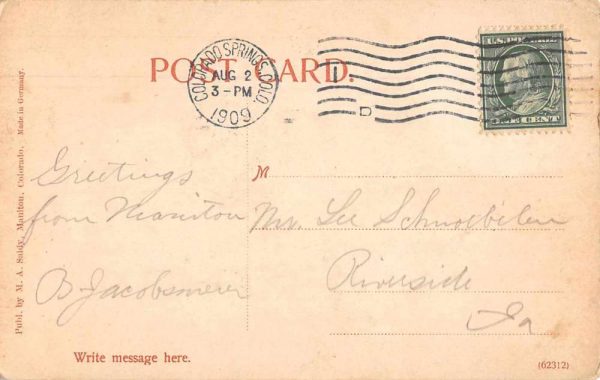 POST CARD.
COLORADO SPRINGS, COLO.
AUG 2
3-PM
1909
1
D
U.S. POSTAGE
ONE CENT
Greetings
from Manitou
B Jacobsmeier
M
Mr. Lee Schnoebelen
Riverside
Ia
Publ. by M. A. Saldy, Manitou, Colorado. Made in Germany.
Write message here.
(62312)